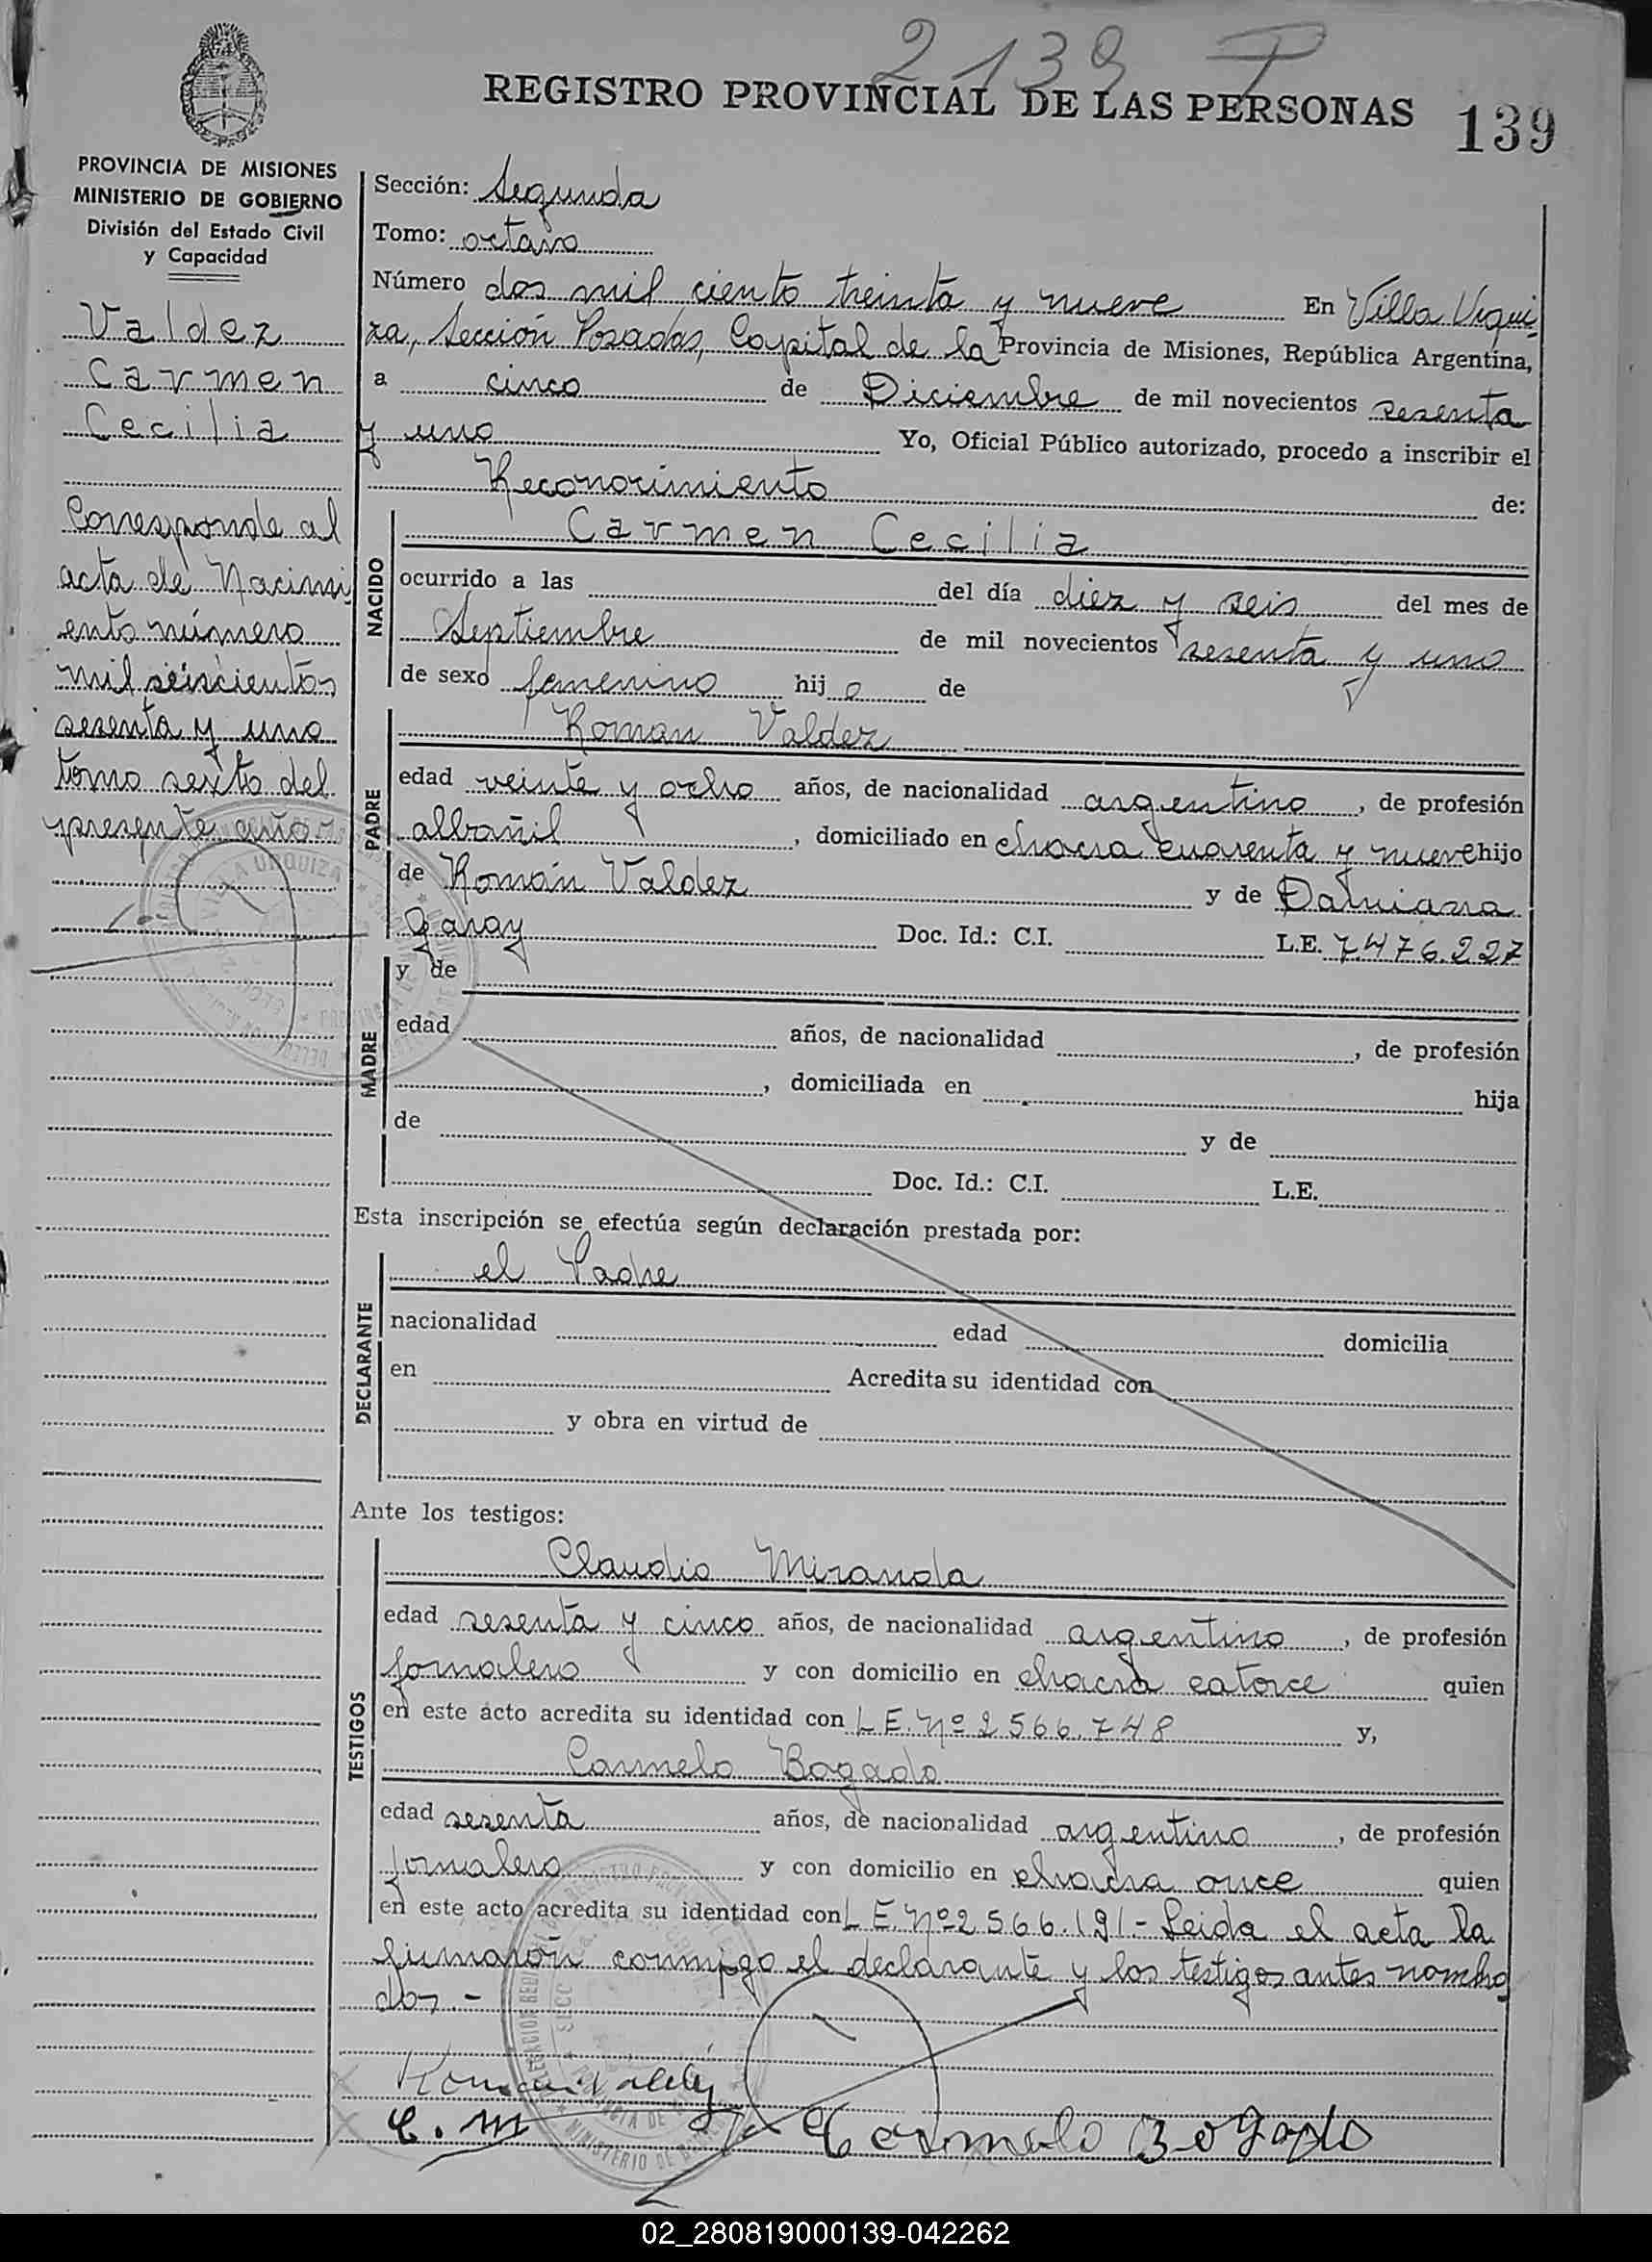 2139 T
REGISTRO PROVINCIAL DE LAS PERSONAS 139
PROVINCIA DE MISIONES
MINISTERIO DE GOBIERNO
División del Estado Civil
y Capacidad
Valdez
Carmen
Cecilia
Corresponde al
acta de Nacimi
ento número
mil seiscientos
sesenta y uno
tomo sexto del
presente año
Sección: Segunda
Tomo: octavo
Número dos mil ciento treinta y nueve En Villa Urqui
za, Sección Posadas, Capital de la Provincia de Misiones, República Argentina,
a cinco de Diciembre de mil novecientos sesenta
y uno Yo, Oficial Público autorizado, procedo a inscribir el
Reconocimiento de:
NACIDO
Carmen Cecilia
ocurrido a las del día diez y seis del mes de
Septiembre de mil novecientos sesenta y uno
de sexo femenino hij a de
PADRE
Roman Valdez
edad veinte y ocho años, de nacionalidad argentino, de profesión
albañil, domiciliado en chacra cuarenta y nueve hijo
de Román Valdez y de Damiana
Garay Doc. Id.: C.I. L.E. 7.476.227
MADRE
y de
edad años, de nacionalidad , de profesión
, domiciliada en hija
de y de
Doc. Id.: C.I. L.E.
Esta inscripción se efectúa según declaración prestada por:
DECLARANTE
el Padre
nacionalidad edad domicilia
en Acredita su identidad con
y obra en virtud de
Ante los testigos:
TESTIGOS
Claudio Miranda
edad sesenta y cinco años, de nacionalidad argentino, de profesión
jornalero y con domicilio en chacra catorce quien
en este acto acredita su identidad con L.E. Nº 2.566.748 y,
Carmelo Bogado
edad sesenta años, de nacionalidad argentino, de profesión
jornalero y con domicilio en chacra once quien
en este acto acredita su identidad con L.E. Nº 2.566.191.- Leida el acta la
firmaron conmigo el declarante y los testigos antes nombra
dos.-
Roman Valdez
C. M Carmelo Bogado
02_280819000139-042262